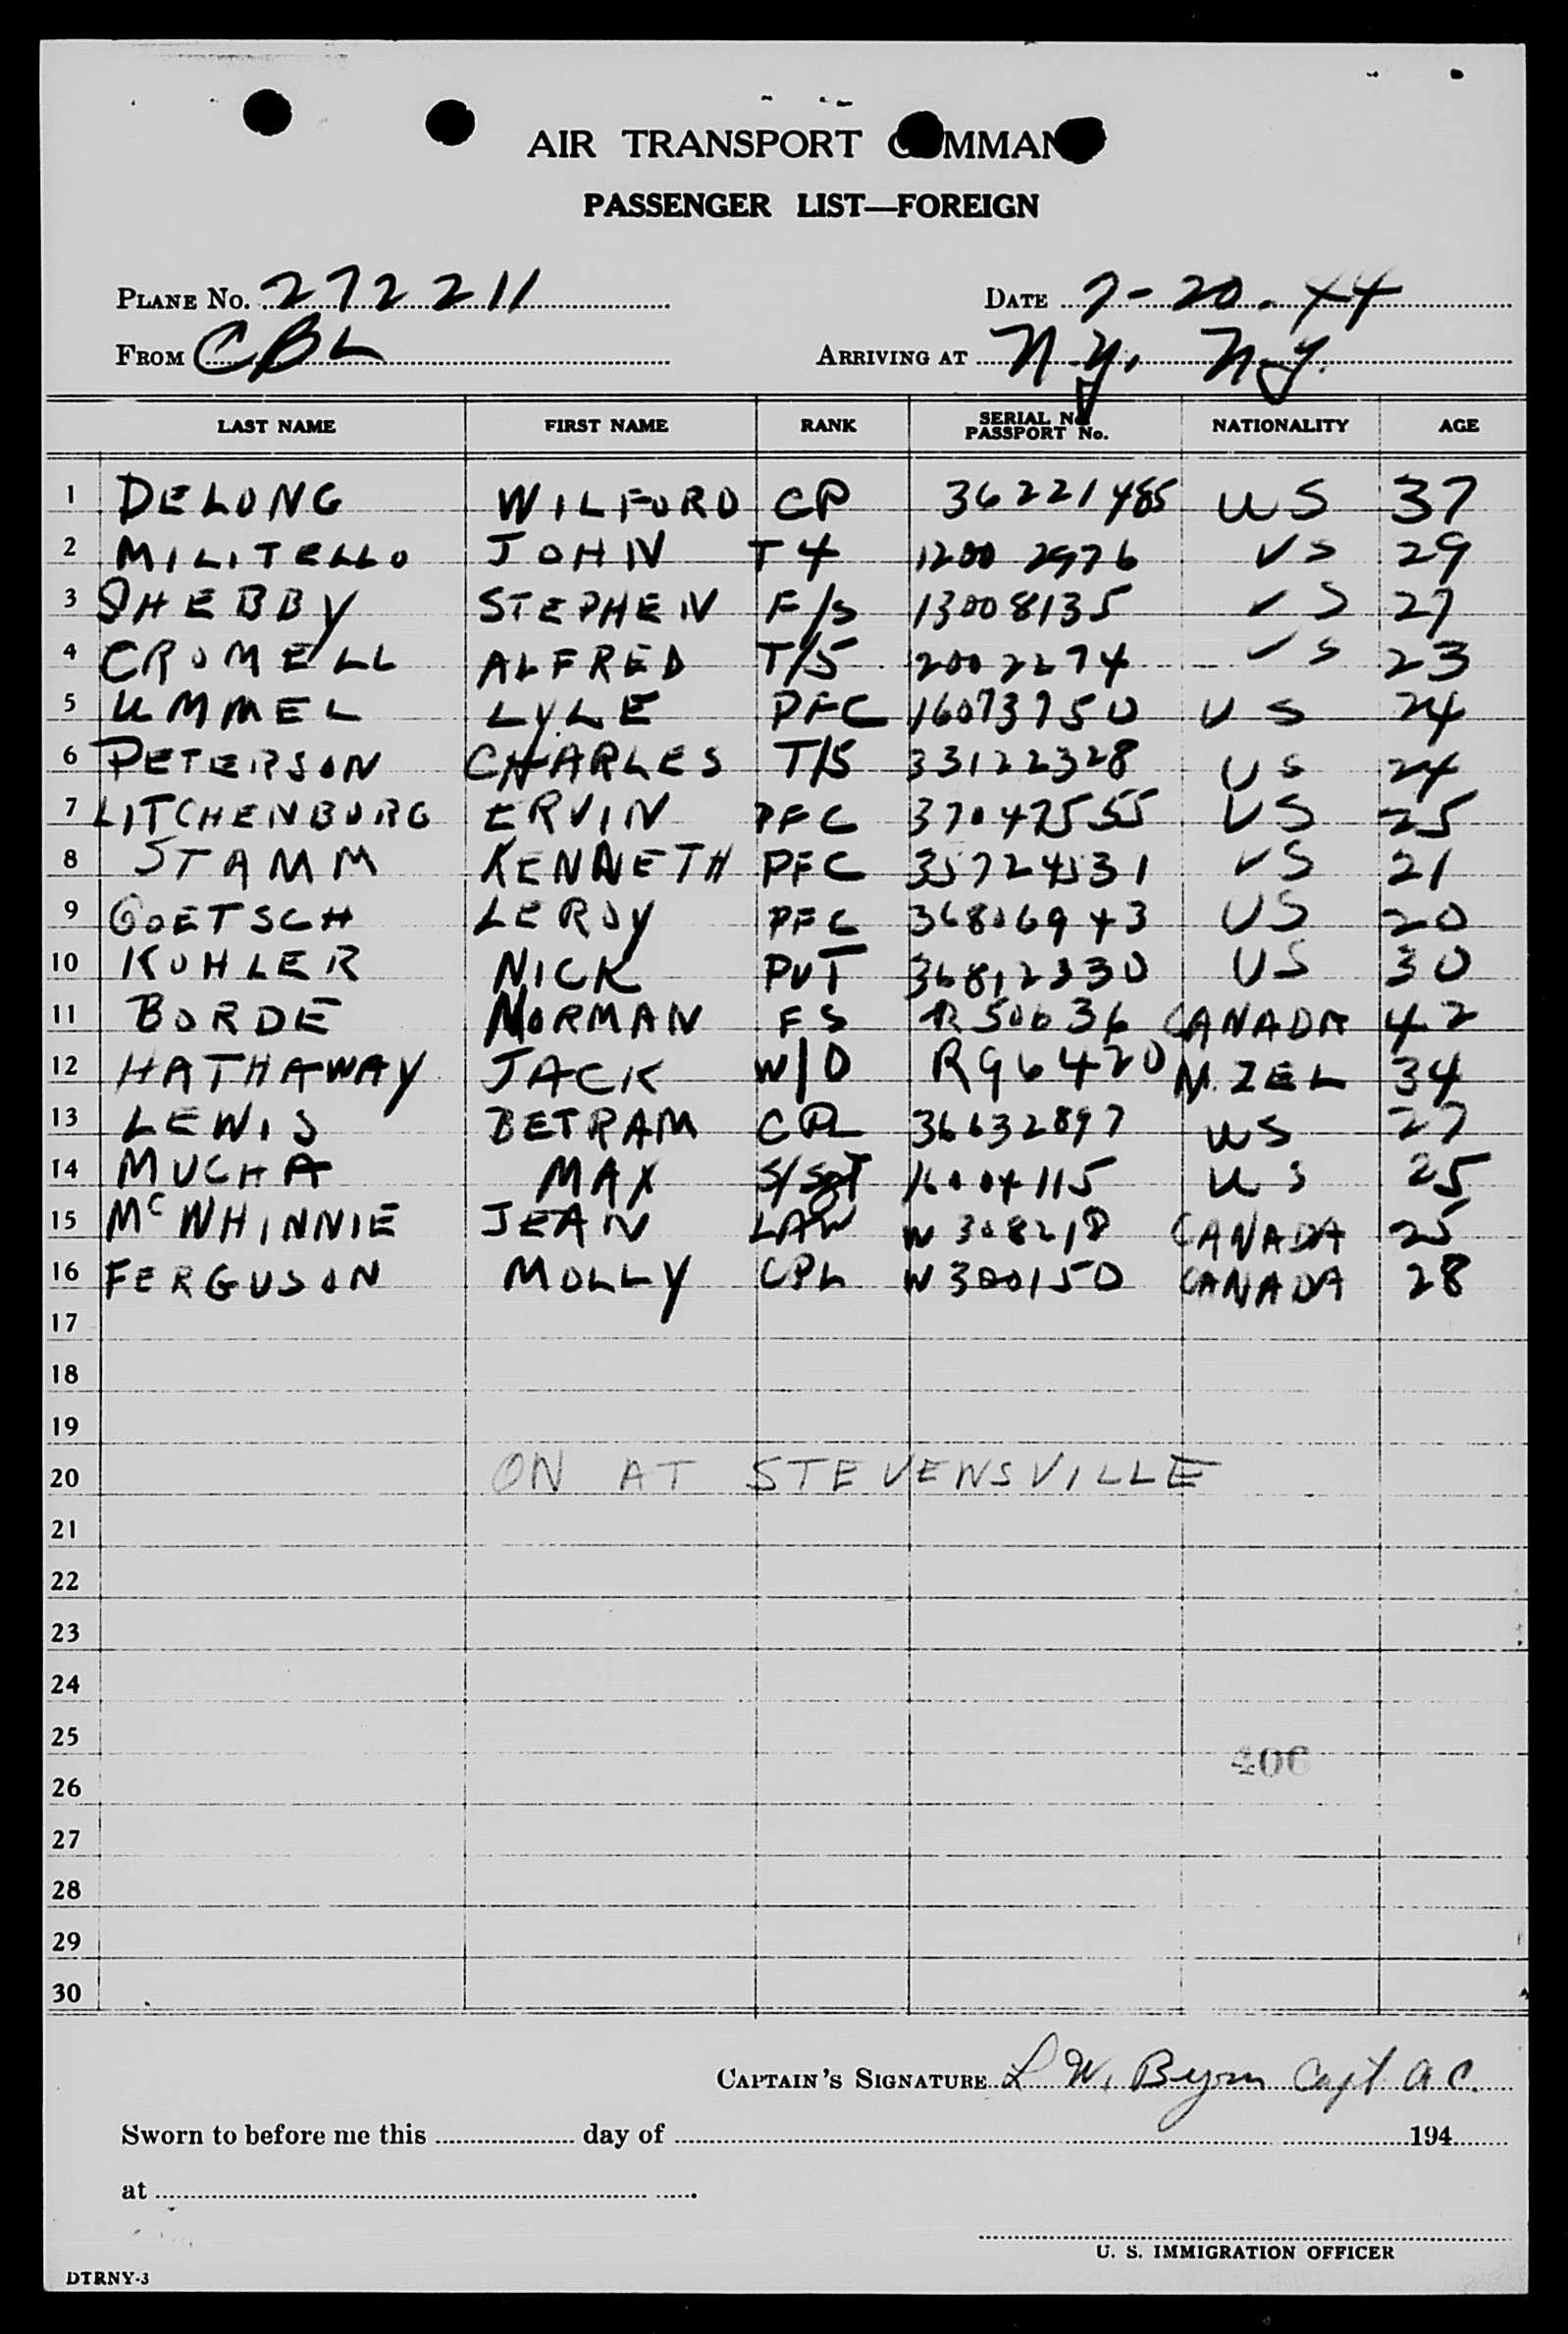 AIR TRANSPORT COMMAND
PASSENGER LIST—FOREIGN
PLANE No. 272211 DATE 7-20-44
FROM CBL ARRIVING AT N.Y. N.Y.
LAST NAME FIRST NAME RANK SERIAL No. PASSPORT No. NATIONALITY AGE
1 DELONG WILFORD CP 36221485 US 37
2 MILITELLO JOHN T4 12002976 US 29
3 SHEBBY STEPHEN F/S 13008135 US 27
4 CROMELL ALFRED T/5 2002274 US 23
5 UMMEL LYLE PFC 16073750 US 24
6 PETERSON CHARLES T/5 33122328 US 24
7 LITCHENBURG ERVIN PFC 37047555 US 25
8 STAMM KENNETH PFC 35724531 US 21
9 GOETSCH LEROY PFC 36806943 US 20
10 KOHLER NICK PVT 36812330 US 30
11 BORDE NORMAN FS R50636 CANADA 42
12 HATHAWAY JACK W/O R96420 N.ZEL 34
13 LEWIS BETRAM CPL 36632897 US 27
14 MUCHA MAX S/SGT 16004115 US 25
15 McWHINNIE JEAN LAW W308218 CANADA 25
16 FERGUSON MOLLY CPL W300150 CANADA 28
17
18
19
20 ON AT STEVENSVILLE
21
22
23
24
25
406
26
27
28
29
30
CAPTAIN'S SIGNATURE L W. Byrn Capt A C.
Sworn to before me this day of 194
at
U. S. IMMIGRATION OFFICER
DTRNY-3